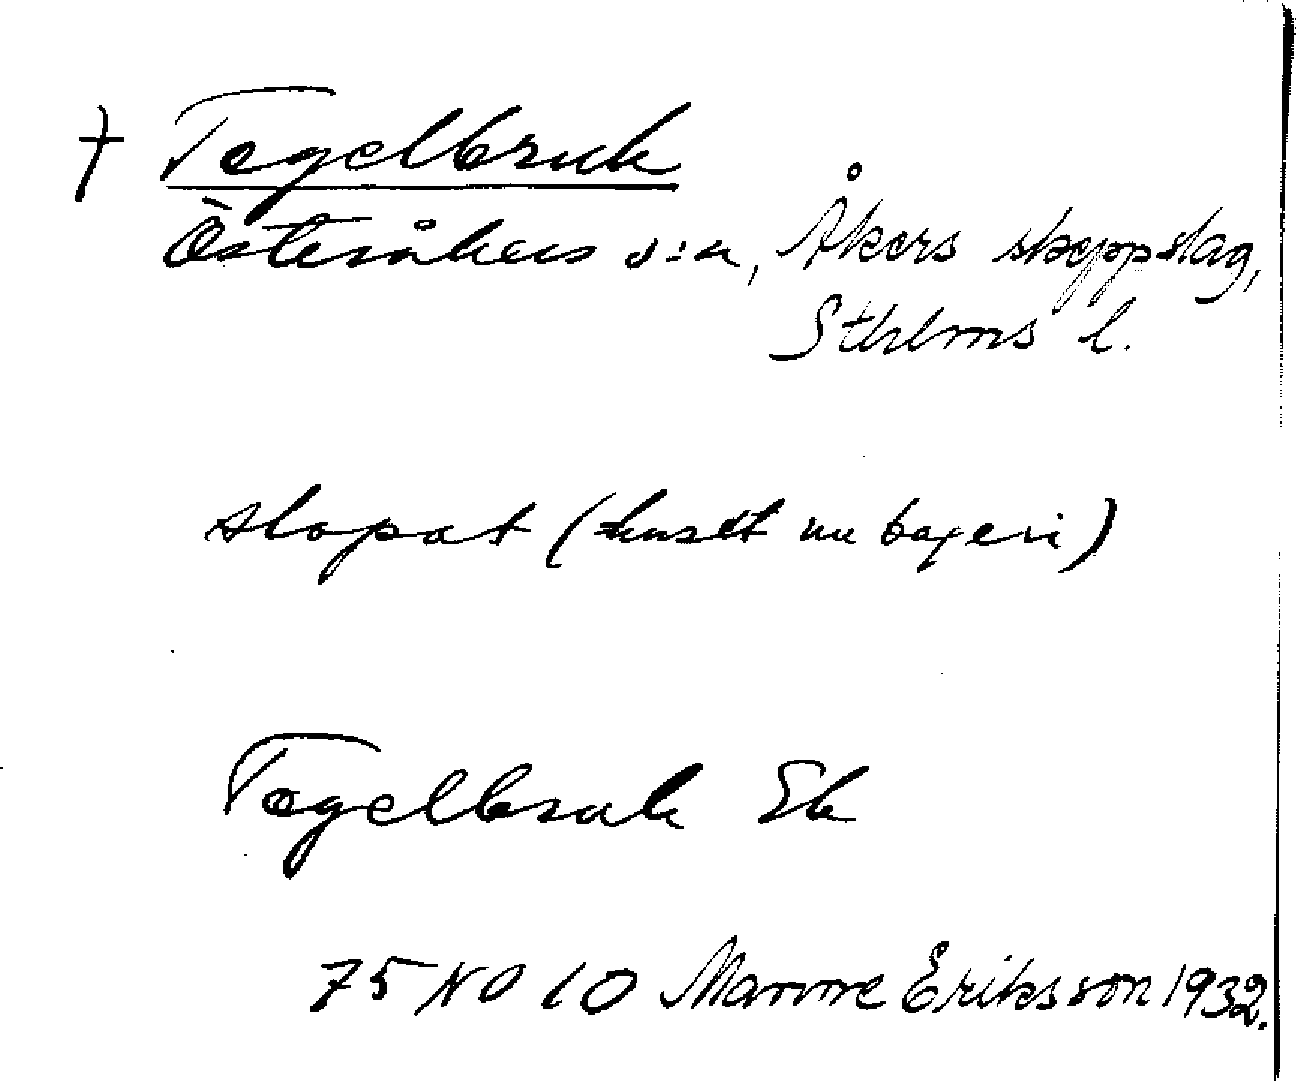 † Tegelbruk
Österåkers s:n, Åkers skeppslag,
Sthlms l.
slopat (huset nu bageri)
Tegelbruk Ek
75 NO 10 Manne Eriksson 1932.